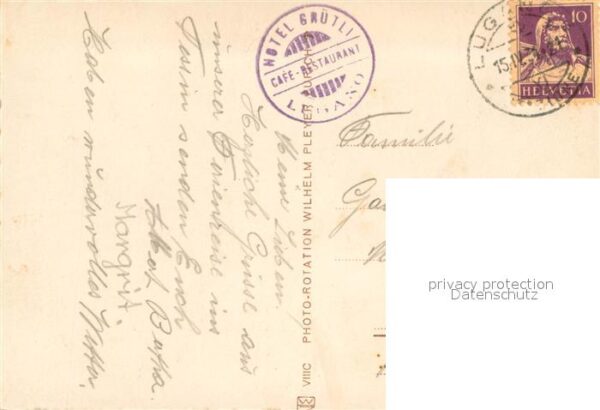 Meine Lieben.
Herzliche Grüsse aus
unserer Ferienreise ins
Tessin senden Euch
Bertha.
Margrit.
Haben wundervolles Wetter.
HOTEL GRÜTLI
CAFÉ-RESTAURANT
LUGANO
VIIIC PHOTO-ROTATION WILHELM PLEYER
LUGA
15.
10
HELVETIA
Familie
privacy protection
Datenschutz